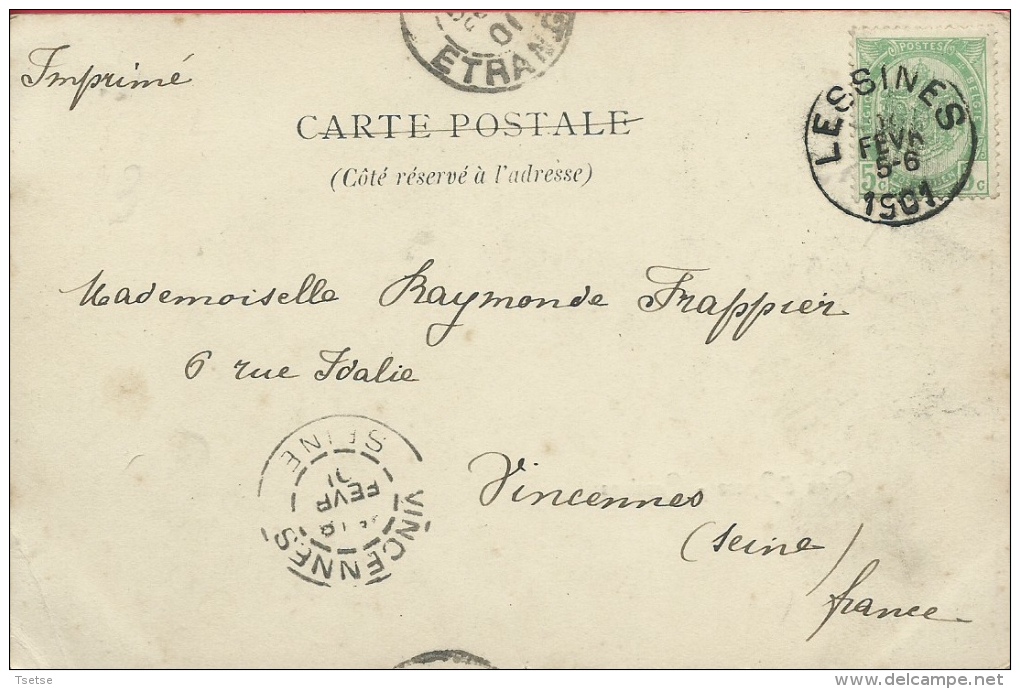 Imprimé
01
ETRANG
CARTE POSTALE
(Côté réservé à l'adresse)
POSTES
LESSINES
FEVR
5-6
1901
5c 5c
Mademoiselle Raymonde Frappier
6 rue Idalie
Vincennes
(Seine)
france
SEINE
01
FEVR
VINCENNES
Tsetse
delcampe.net